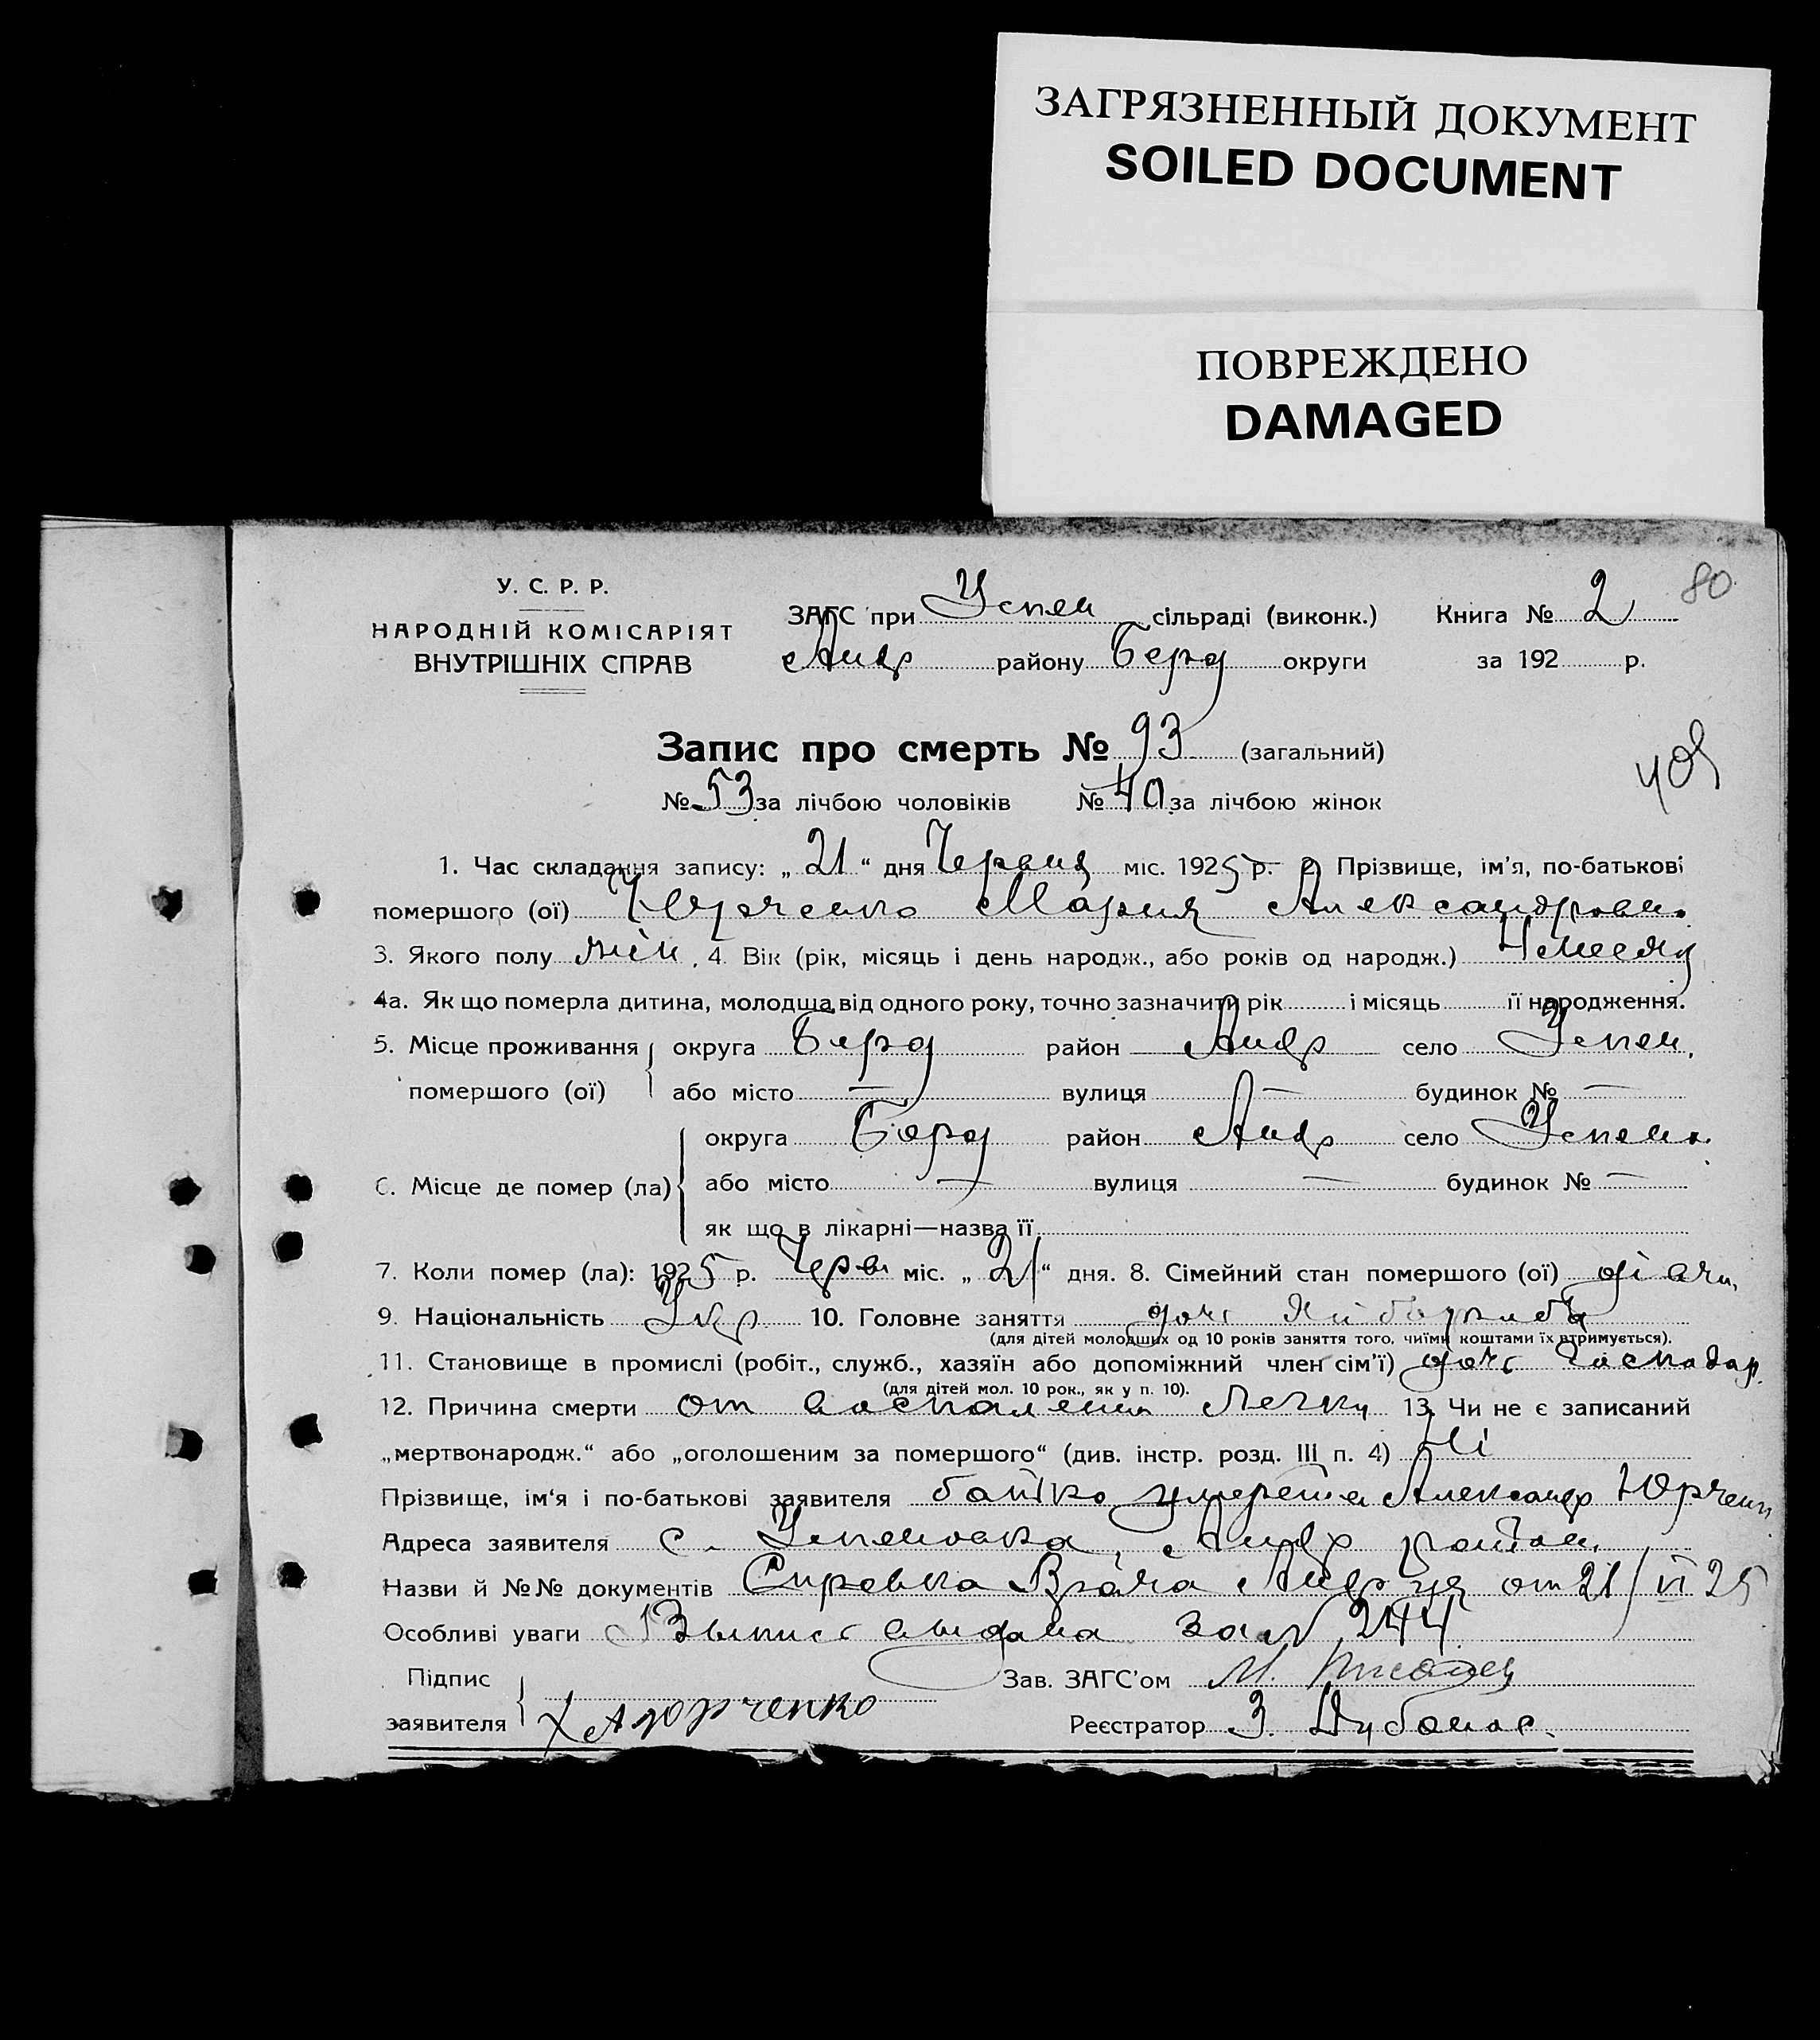 ЗАГРЯЗНЕННЫЙ ДОКУМЕНТ
SOILED DOCUMENT
ПОВРЕЖДЕНО
DAMAGED
80
У. С. Р. Р.
НАРОДНІЙ КОМІСАРІЯТ
ВНУТРІШНІХ СПРАВ
ЗАГС при Успен сільраді (виконк.) Книга № 2
Андр району Берд округи за 192 р.
Запис про смерть № 93 (загальний)
№ 53 за лічбою чоловіків № 40 за лічбою жінок
1. Час складання запису: „ 21 “ дня Червня міс. 1925 р. 2. Прізвище, ім’я, по-батькові
помершого (ої) Юрченко Мария Александровн.
3. Якого полу жін. 4. Вік (рік, місяць і день народж., або років од народж.)
4а. Як що померла дитина, молодша від одного року, точно зазначити рік і місяць її народження.
5. Місце проживання округа Берд район Андр село Успен.
помершого (ої) або місто — вулиця — будинок № —
округа Берд район Андр село Успен.
6. Місце де помер (ла) або місто — вулиця — будинок № —
як що в лікарні—назва її
7. Коли помер (ла): 1925 р. Черв міс. „ 21 “ дня. 8. Сімейний стан помершого (ої)
9. Національність Укр. 10. Головне заняття доч
(для дітей молодших од 10 років заняття того, чиїми коштами їх втримується).
11. Становище в промислі (робіт., служб., хазяїн або допоміжний член сім’ї) доч господар.
(для дітей мол. 10 рок., як у п. 10).
12. Причина смерти от воспаления 13. Чи не є записаний
„мертвонародж.“ або „оголошеним за помершого“ (див. інстр. розд. III п. 4) Ні
Прізвище, ім‘я і по-батькові заявителя батько Александр Юрченк
Адреса заявителя с. Успеновка, Андр район.
Назви й №№ документів Справка Врача Андр от 21/VI 25
Особливі уваги Выпись выдана за № 244
Підпис
заявителя Х А Юрченко
Зав. ЗАГС’ом М.
Реєстратор З.